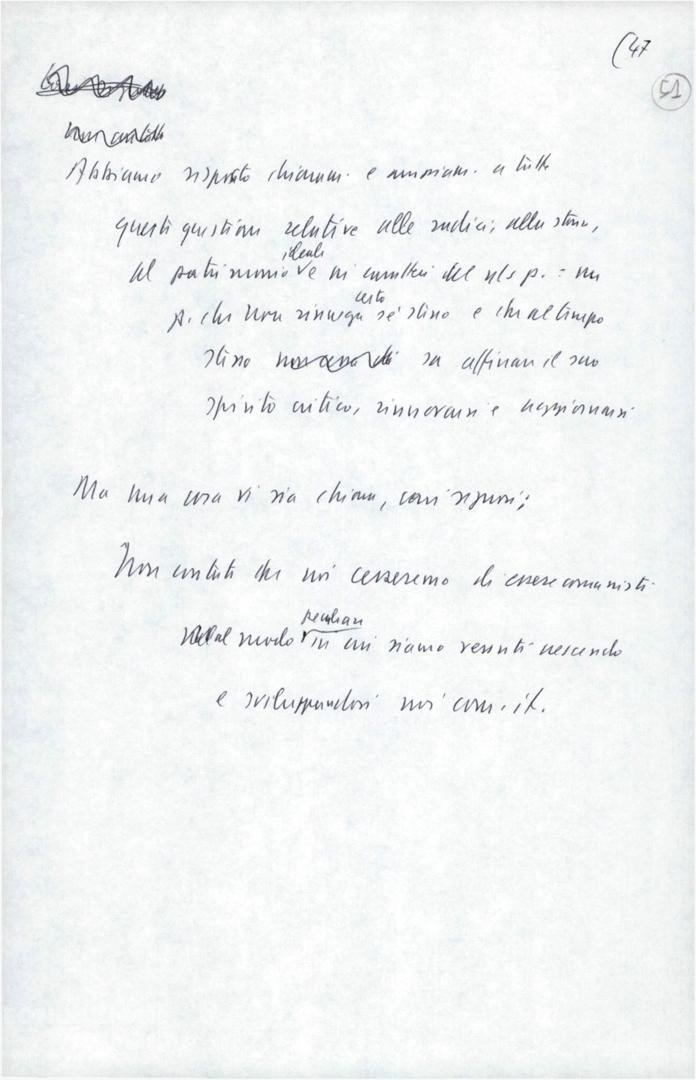 (47
51
Abbiamo risposto chiaram. e ampiam. a tutte
queste questioni relative alle radici, alla storia,
al patrimonio ideale e ai caratteri del ns p. = un
p. che non rinnega certo sé stesso e che al tempo
stesso sa affinare il suo
spirito critico, rinnovarsi e aggiornarsi
Ma una cosa vi sia chiara, cari signori;
Non contate che noi cesseremo di essere comunisti
nel modo peculiare in cui siamo venuti crescendo
e sviluppandosi noi com. it.